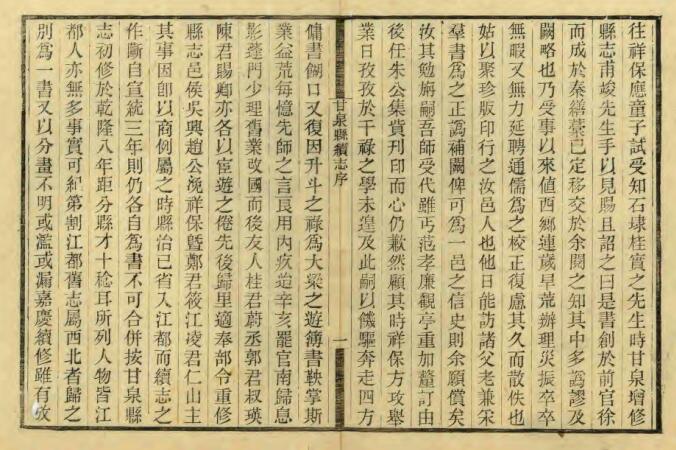 往祥保應童子試受知石埭桂實之先生時甘泉增修
縣志甫竣先生手以見賜且詔之曰是書創於前官徐
而成於秦繕藁已定移交於余閱之知其中多譌謬及
闕略也乃受事以來值西鄉連歲旱荒辦理災振卒卒
無暇又無力延聘通儒爲之校正復慮其久而散佚也
姑以聚珍版印行之汝邑人也他日能訪諸父老兼采
羣書爲之正譌補闕俾可爲一邑之信史則余願償矣
汝其勉旃嗣吾師受代雖丐范孝廉觀亭重加釐訂由
後任朱公集貲刊印而心仍歉然顧其時祥保方攻舉
業日孜孜於干祿之學未遑及此嗣以饑驅奔走四方
甘泉縣續志序
一
傭書餬口又復因升斗之祿爲大梁之遊簿書鞅掌斯
業益荒每憶先師之言良用內疚迨辛亥罷官南歸息
影蓬門少理舊業改國而後友人桂君蔚丞郭君叔瑛
陳君賜卿亦各以宦遊之倦先後歸里適奉部令重修
縣志邑侯吳興趙公浼祥保曁鄭君筱江凌君仁山主
其事因卽以商例屬之時縣治已省入江都而續志之
作斷自宣統三年則仍各自爲書不可合併按甘泉縣
志初修於乾隆八年距分縣才十稔耳所列人物皆江
都人亦無多事實可紀第割江都舊志屬西北者歸之
別爲一書又以分畫不明或濫或漏嘉慶續修雖有攷